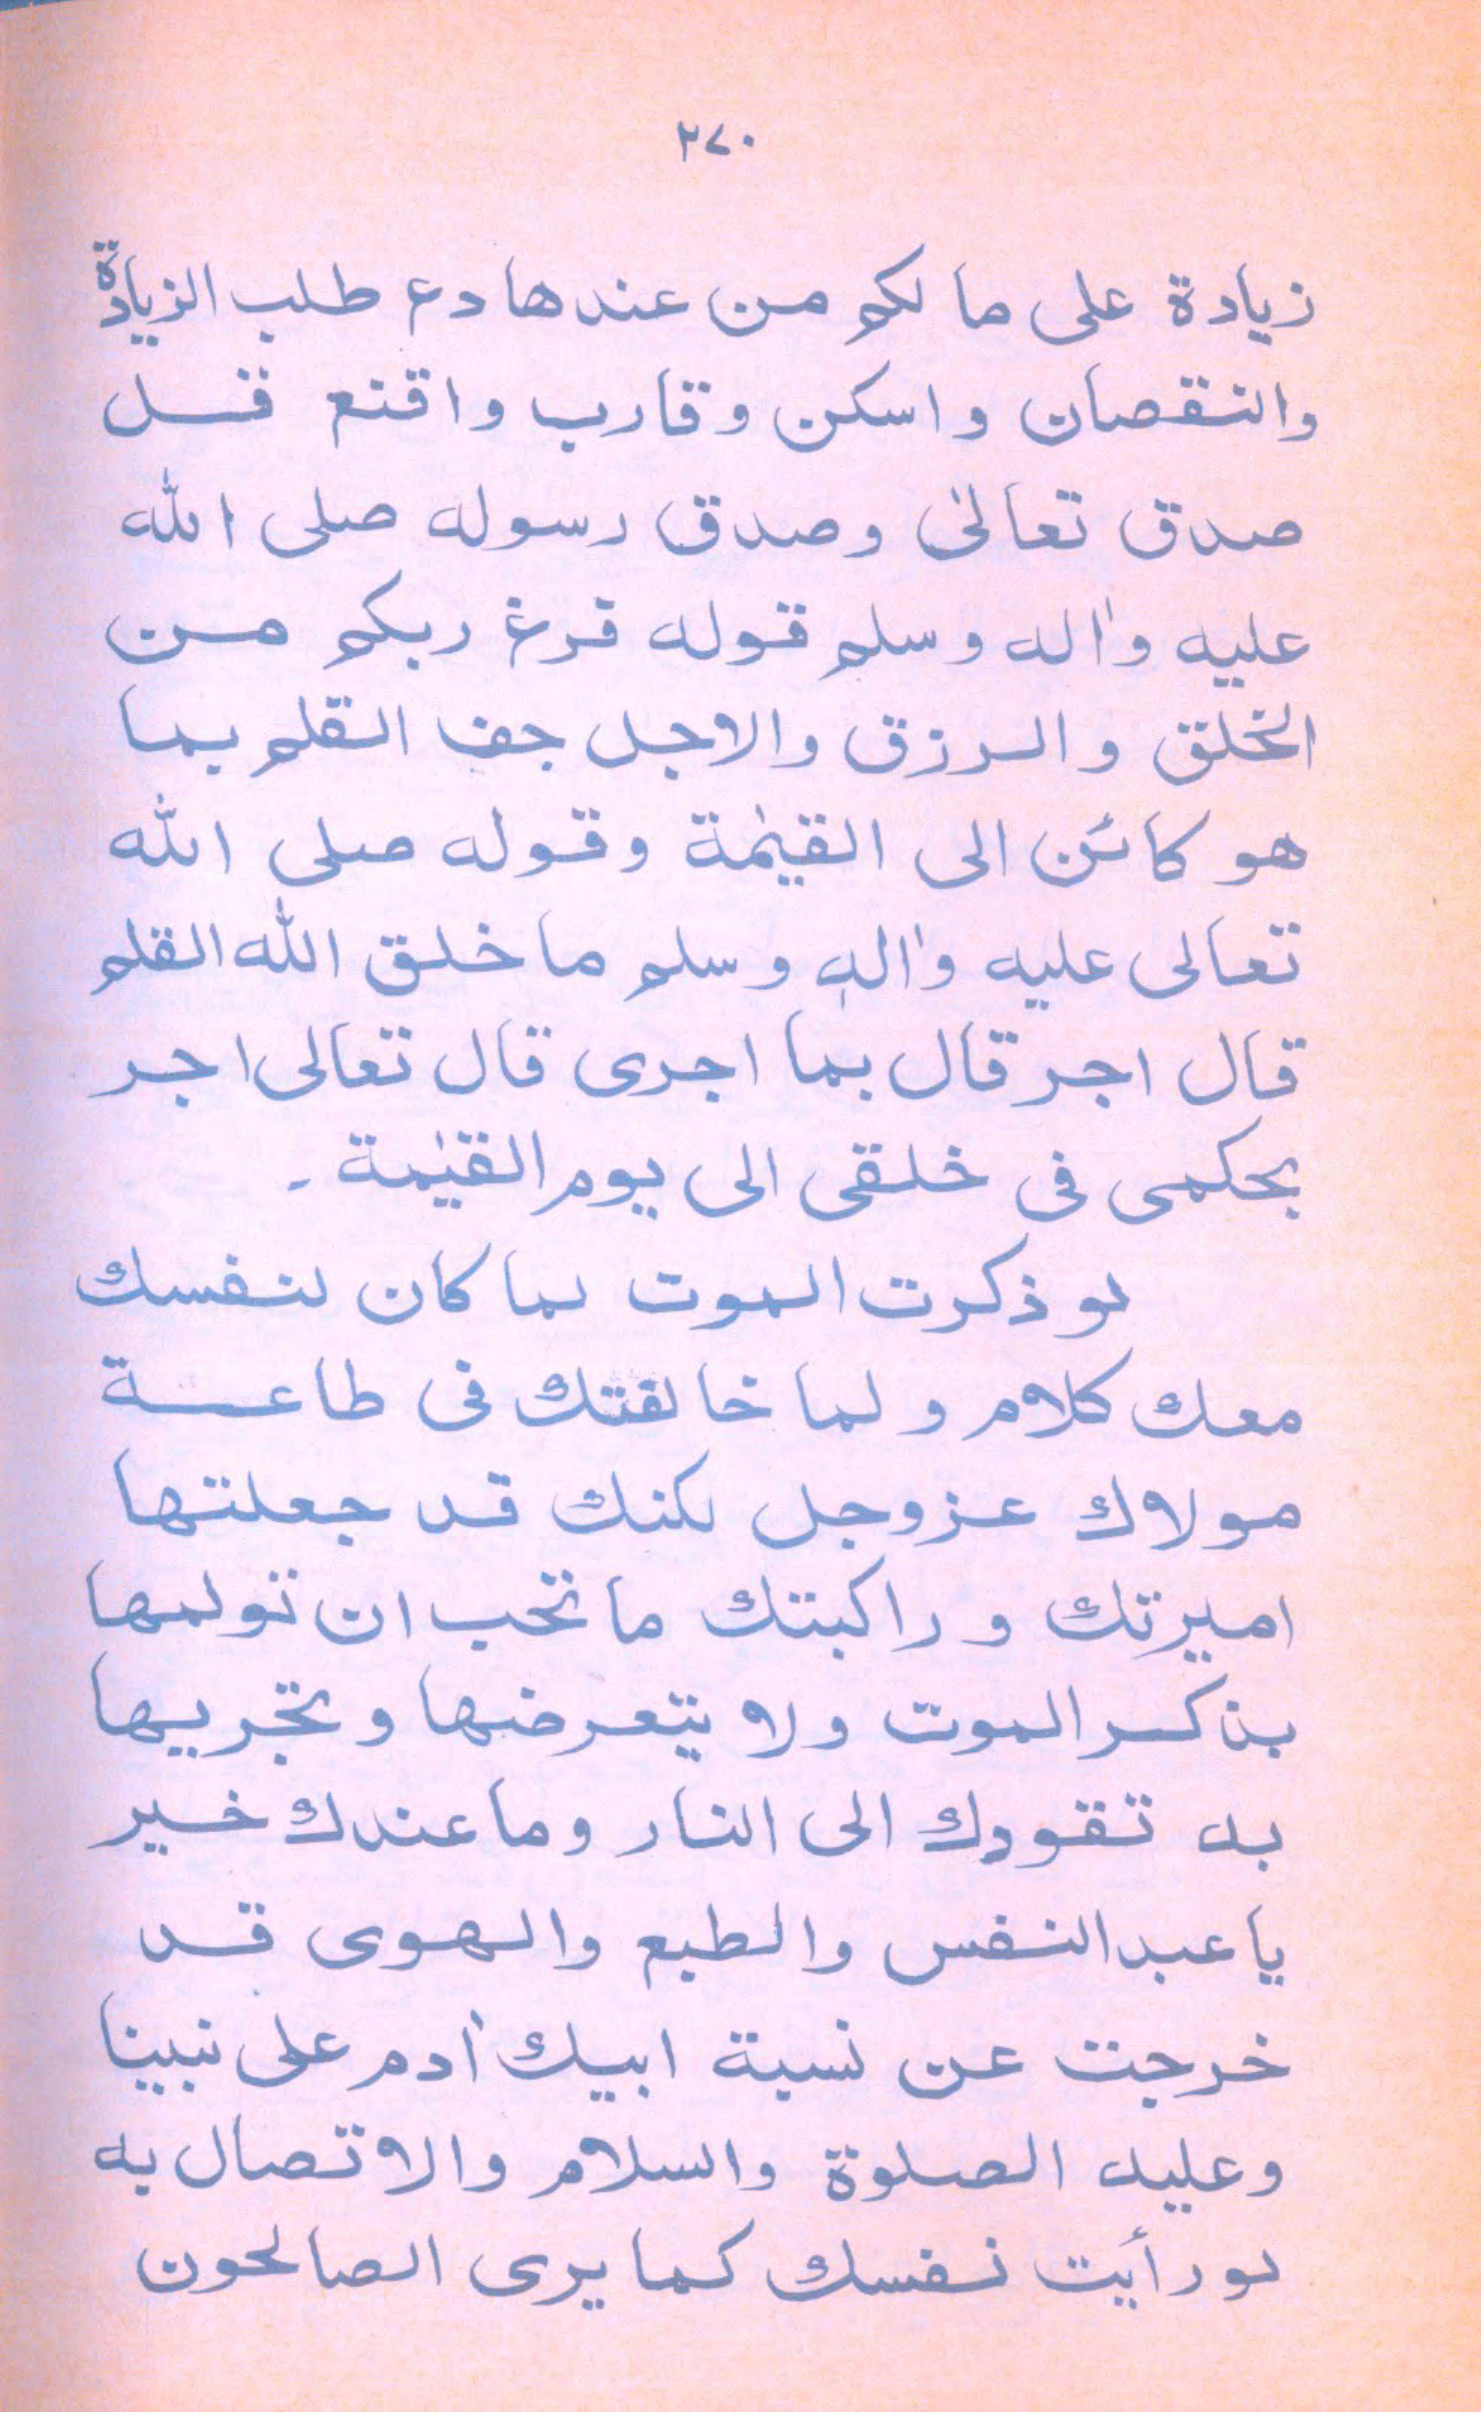 ٢٧٠
زيادة على ما لكم من عندها دع طلب الزيادة
والنقصان واسكن وقارب واقنع فسل
صدق تعالىٰ وصدق رسوله صلى الله
عليه واٰله وسلم قوله فرغ ربكم من
الخلق والرزق والاجل جف القلم بما
هو كائن الى القيٰمة وقوله صلى الله
تعالى عليه واٰلهٖ وسلم ما خلق الله القلم
قال اجر قال بما اجرى قال تعالى اجر
بحكمى فى خلقى الى يوم القيٰمة ۔
لو ذكرت الموت لما كان لنفسك
معك كلام ولما خالفتك فى طاعة
مولاك عزوجل لكنك قد جعلتها
اميرتك وراكبتك ما تحب ان تولمها
بذكر الموت ولا يتعرضها وتجريها
به تقودك الى النار وما عندك خير
يا عبد النفس والطبع والهوى قد
خرجت عن نسبة ابيك اٰدم على نبينا
وعليه الصلوة والسلام والاتصال به
لو رأيت نفسك كما يرى الصالحون